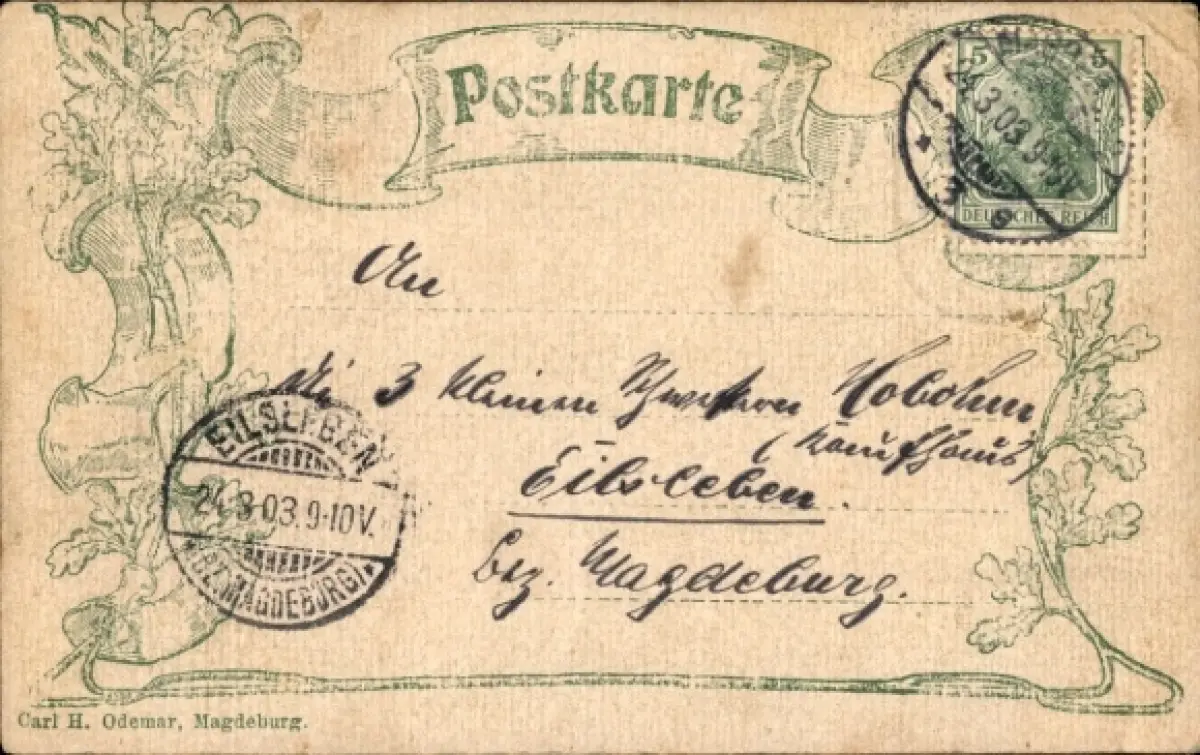 Postkarte
5
24.3.03.9-10V
DEUTSCHES REICH
3 c
An
die 3 kleinen Schwestern Hobohm
(Kaufhaus)
Eilsleben.
Bez. Magdeburg.
EILSLEBEN
24.3.03.9-10V.
*(BZ.MAGDEBURG)*
Carl H. Odemar, Magdeburg.